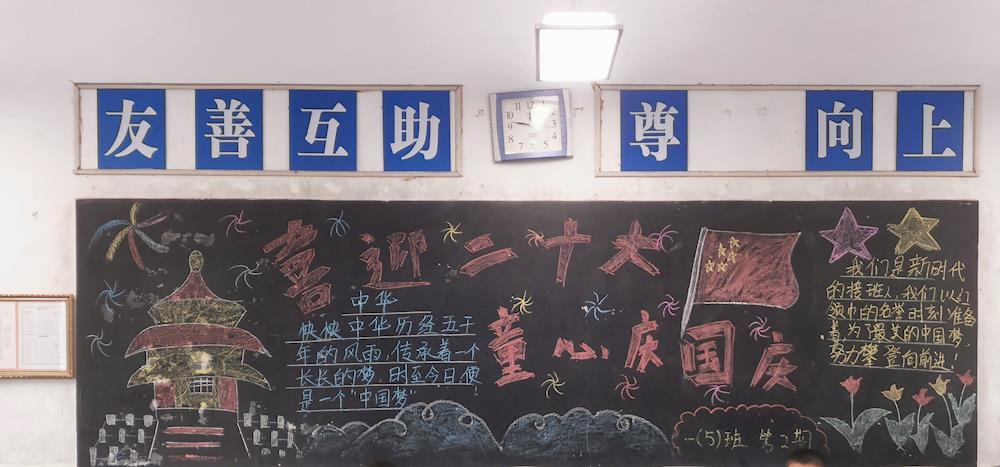 友善互助
尊 向上
喜迎二十大
童心庆国庆
中华
怏怏中华历经五千
年的风雨,传承着一个
长长的梦,时至今日便
是一个"中国梦"
我们是新时代
的接班人,我们以红
领巾的名誉时刻准备
着为"最美的中国梦,
努力攀登向前进!
一(5)班 第2期